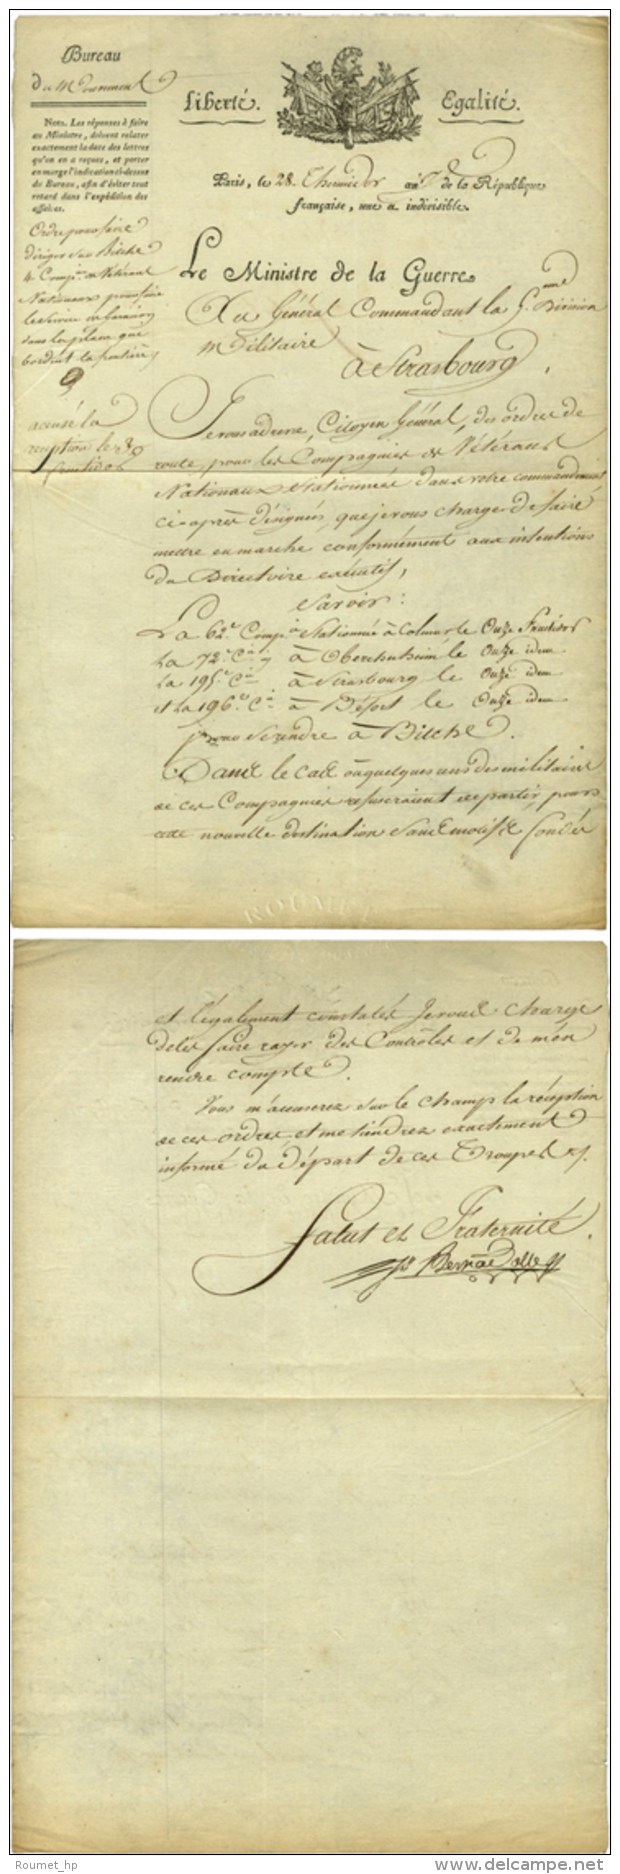 Bureau
du Mouvement
Nota. Les réponses à faire
au Ministre, doivent relater
exactement la date des lettres
qu'on en a reçues, et porter
en marge l'indication ci-dessus
du Bureau, afin d'éviter tout
retard dans l'expédition des
affaires.
Ordre pour faire
diriger sur Bitche
4 Comp.ies de Vétérans
Nationaux pour faire
le Service de
dans les places qui
bordent la frontière
accusé la
reception le 30
Liberté. Egalité.
Paris, le 28. Thermidor an 7 de la République
française, une et indivisible.
Le Ministre de la Guerre
Au Général Commandant la 5.eme Division
Militaire
à Strasbourg.
Je vous adresse, Citoyen Général, des ordres de
route, pour les Compagnies de Vétérans
Nationaux Stationnées dans votre commandement
ci-après désignées, que je vous charge de faire
mettre en marche conformément aux intentions
du Directoire exécutif,
Savoir:
La 62.e Comp.ie Stationnée à Colmar le Onze Fructidor
La 72.e C.ie à le Onze idem
La 195.e C.ie à Strasbourg le Onze idem
et La 196.e C.ie à Béfort le Onze idem
pour se rendre à Bitche.
Dans le cas où quelques uns des militaires
de ces Compagnies refuseraient de partir pour
cette nouvelle destination Sans motifs fondés
ROUMET
et légalement constatés, Je vous charge
de les faire rayer des Contrôles et de m'en
rendre compte.
Vous m'accuserez sur le champ la réception
de ces ordres et me tiendrez exactement
informé du départ de ces Troupes.
Salut et Fraternité.
Bernadotte
Roumet_hp
delcampe.net